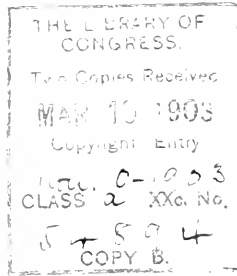 THE LIBRARY OF
CONGRESS.
Two Copies Received
MAR 1903
Copyright Entry
CLASS a XXc. No.
COPY B.